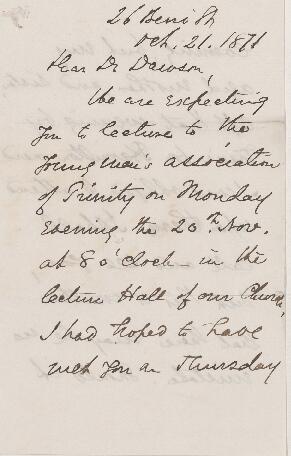 26 Beni St
Oct. 21. 1871
Dear Dr Dawson,
We are expecting
you to lecture to the
Young men's association
of Trinity on Monday
Evening the 20th Nov.
at 8 o'clock - in the
lecture Hall of our Church,
I had hoped to have
met you on Thursday